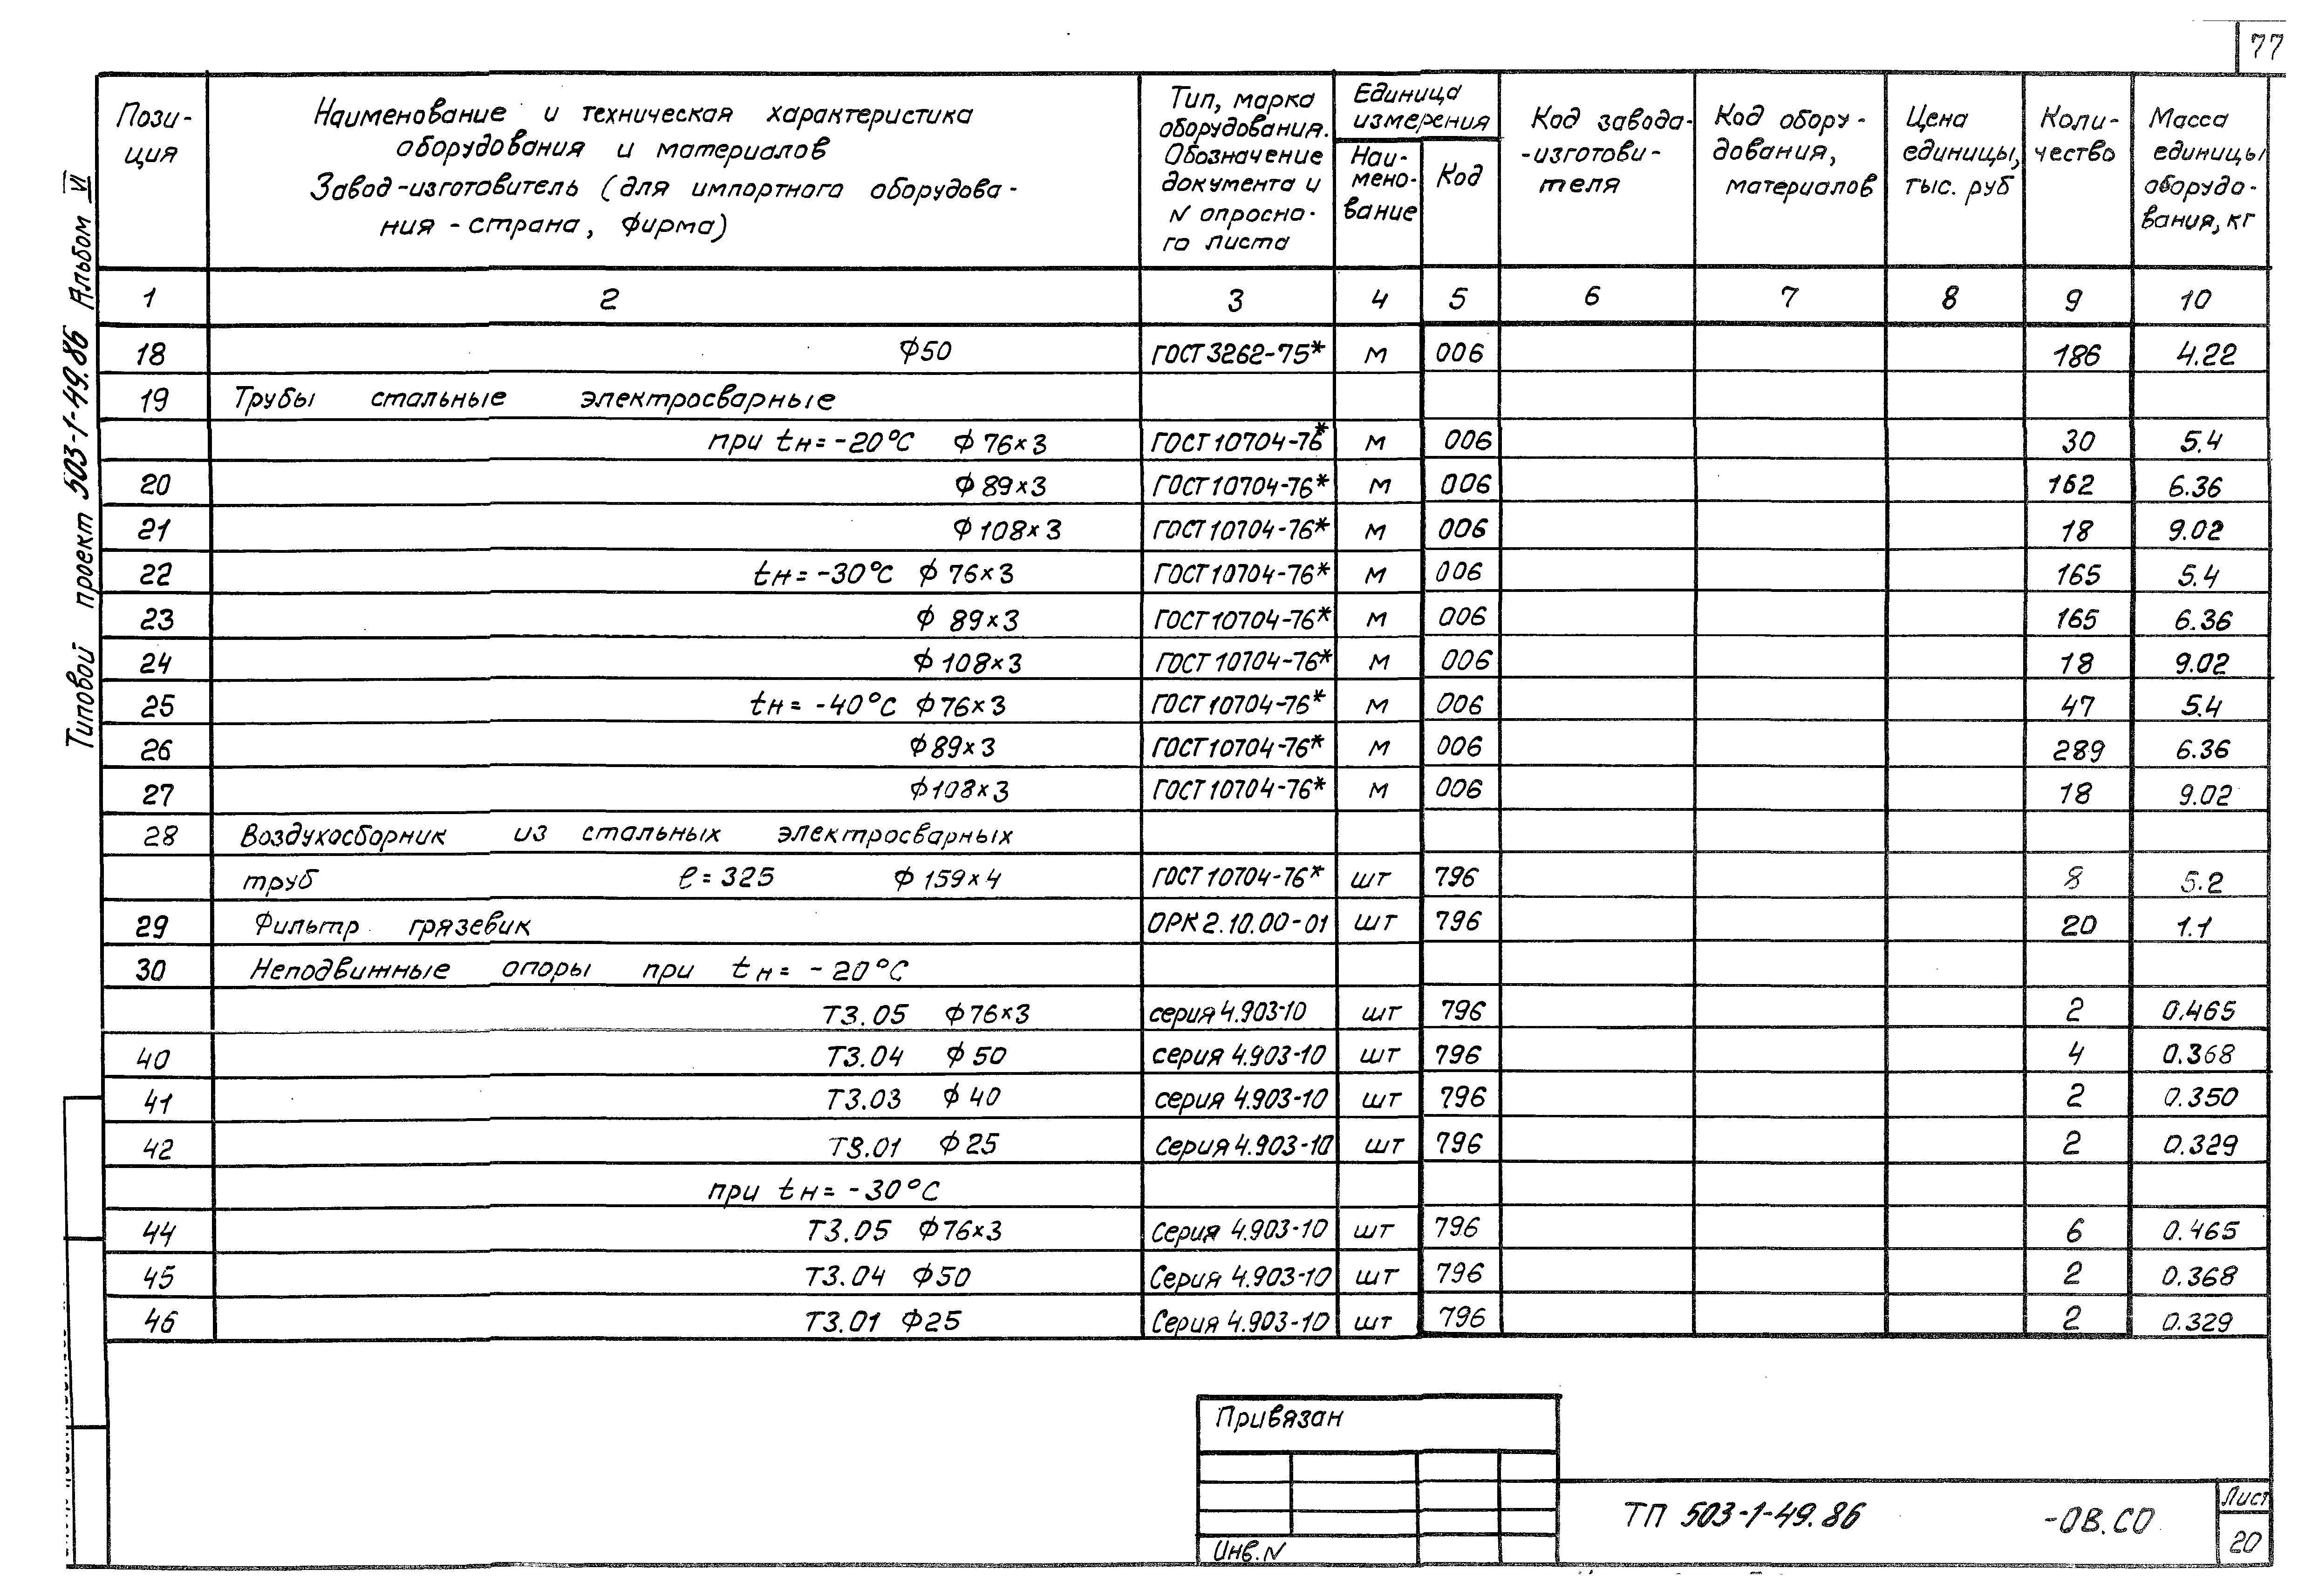 77
Типовой проект 503-1-49.86 Альбом VI
Пози-
ция
Наименование и техническая характеристика
оборудования и материалов
Завод-изготовитель (для импортного оборудова-
ния - страна, фирма)
Тип, марка
оборудования.
Обозначение
документа и
N опросно-
го листа
Единица
измерения
Наи-
мено-
вание
Код
Код завода-
-изготови-
теля
Код обору-
дования,
материалов
Цена
единицы,
тыс. руб
Коли-
чество
Масса
единицы
оборудо-
вания, кг
1 2 3 4 5 6 7 8 9 10
18 ф50 ГОСТ 3262-75* м 006 186 4.22
19 Трубы стальные электросварные
при tн = -20°С ф 76×3 ГОСТ 10704-76* м 006 30 5.4
20 ф 89×3 ГОСТ 10704-76* м 006 162 6.36
21 ф 108×3 ГОСТ 10704-76* м 006 18 9.02
22 tн = -30°С ф 76×3 ГОСТ 10704-76* м 006 165 5.4
23 ф 89×3 ГОСТ 10704-76* м 006 165 6.36
24 ф 108×3 ГОСТ 10704-76* м 006 18 9.02
25 tн = -40°С ф 76×3 ГОСТ 10704-76* м 006 47 5.4
26 ф 89×3 ГОСТ 10704-76* м 006 289 6.36
27 ф 108×3 ГОСТ 10704-76* м 006 18 9.02
28 Воздухосборник из стальных электросварных
труб ℓ = 325 ф 159×4 ГОСТ 10704-76* шт 796 8 5.2
29 Фильтр грязевик ОРК 2.10.00-01 шт 796 20 1.1
30 Неподвижные опоры при tн = -20°С
Т3.05 ф 76×3 серия 4.903-10 шт 796 2 0.465
40 Т3.04 ф 50 серия 4.903-10 шт 796 4 0.368
41 Т3.03 ф 40 серия 4.903-10 шт 796 2 0.350
42 Т3.01 ф 25 серия 4.903-10 шт 796 2 0.329
при tн = -30°С
44 Т3.05 ф 76×3 Серия 4.903-10 шт 796 6 0.465
45 Т3.04 ф 50 Серия 4.903-10 шт 796 2 0.368
46 Т3.01 ф 25 Серия 4.903-10 шт 796 2 0.329
Привязан
Инв. N
ТП 503-1-49.86 -ОВ.СО
Лист
20